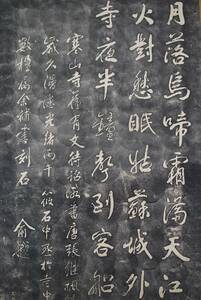 月落烏啼霜滿天江
火對愁眠姑蘇城外
寺夜半鐘聲到客船
寒山寺舊有文待詔所書唐張繼楓
歲久漫漶光緒丙午筱石中丞於寺中
數楹屬余補書刻石 俞樾